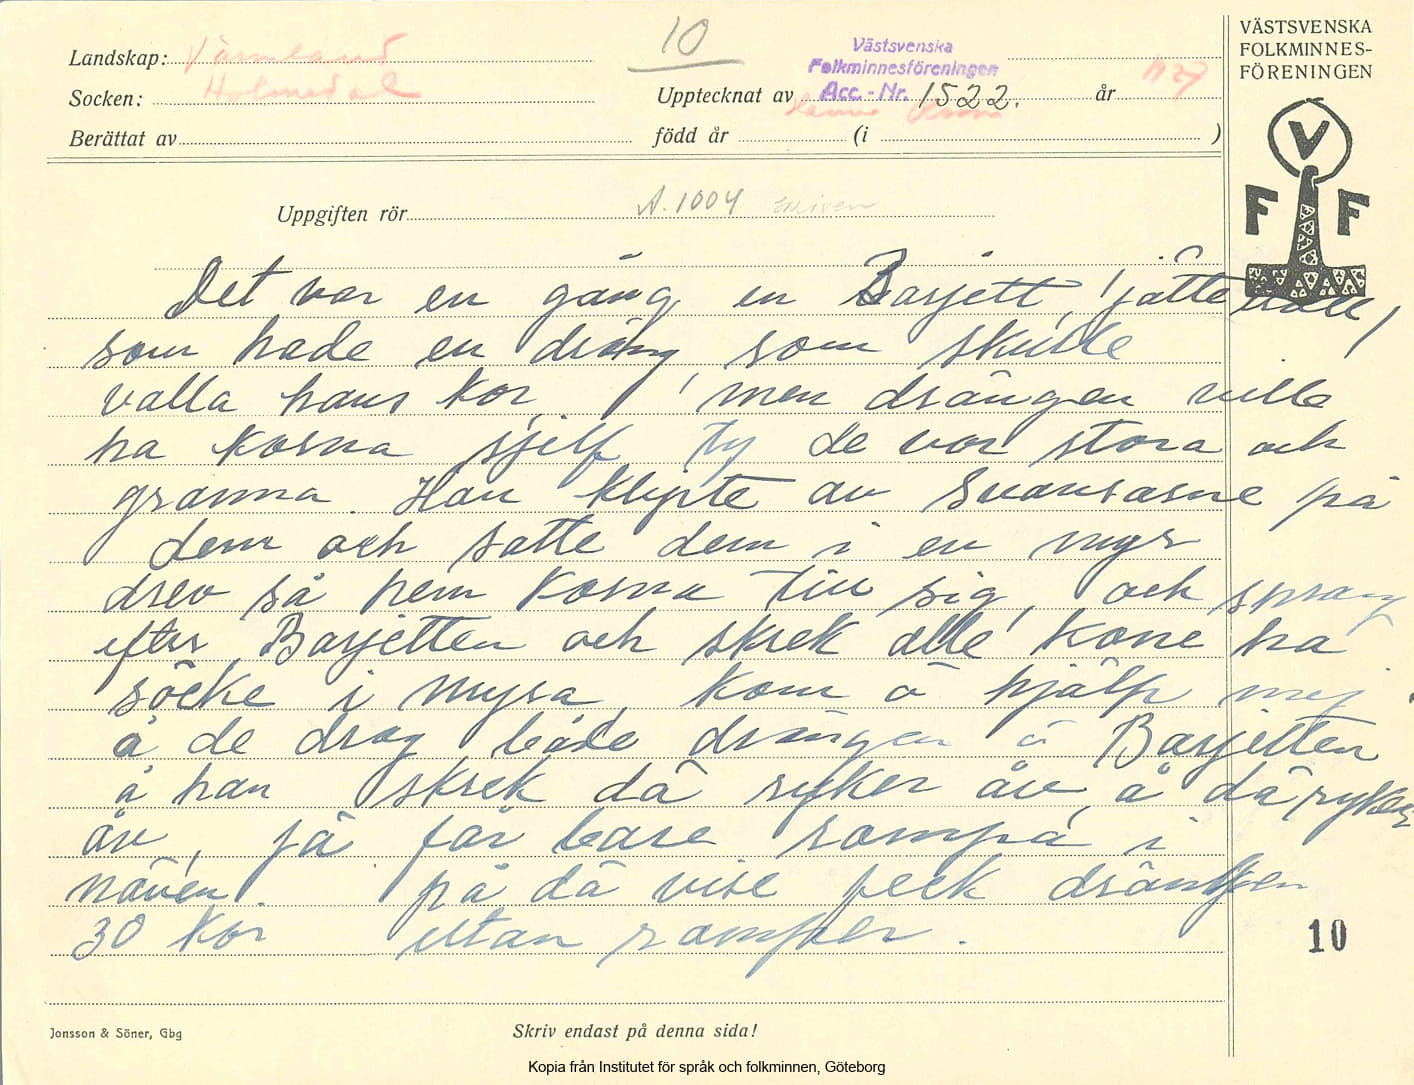 10
Landskap: Värmland
Västsvenska
Folkminnesföreningen
Acc.-Nr. 1522.
Socken: Holmedal
Upptecknat av
år 1927
Berättat av
född år (i )
VÄSTSVENSKA
FOLKMINNES-
FÖRENINGEN
V
F F
Uppgiften rör A. 1004
Det var en gång en Barjett, (jättetroll)
som hade en dräng som skulle
valla hans kor, men drängen ville
ha korna sjelf ty de var stora och
granna. Han klipte av svansarne på
dem och satte dem i en myr
drev så hem korna till sig, och sprang
efter Barjetten och skrek alle kone ha
söcke i myra, kom å hjälp mej.
å de drog både drängen å Barjetten
å han skrek dä ryker åv å dä ryker
åv, jä får bare rompa i
näven. på dä vise feck drängen
30 kor utan romper.
10
Jonsson & Söner, Gbg
Skriv endast på denna sida!
Kopia från Institutet för språk och folkminnen, Göteborg